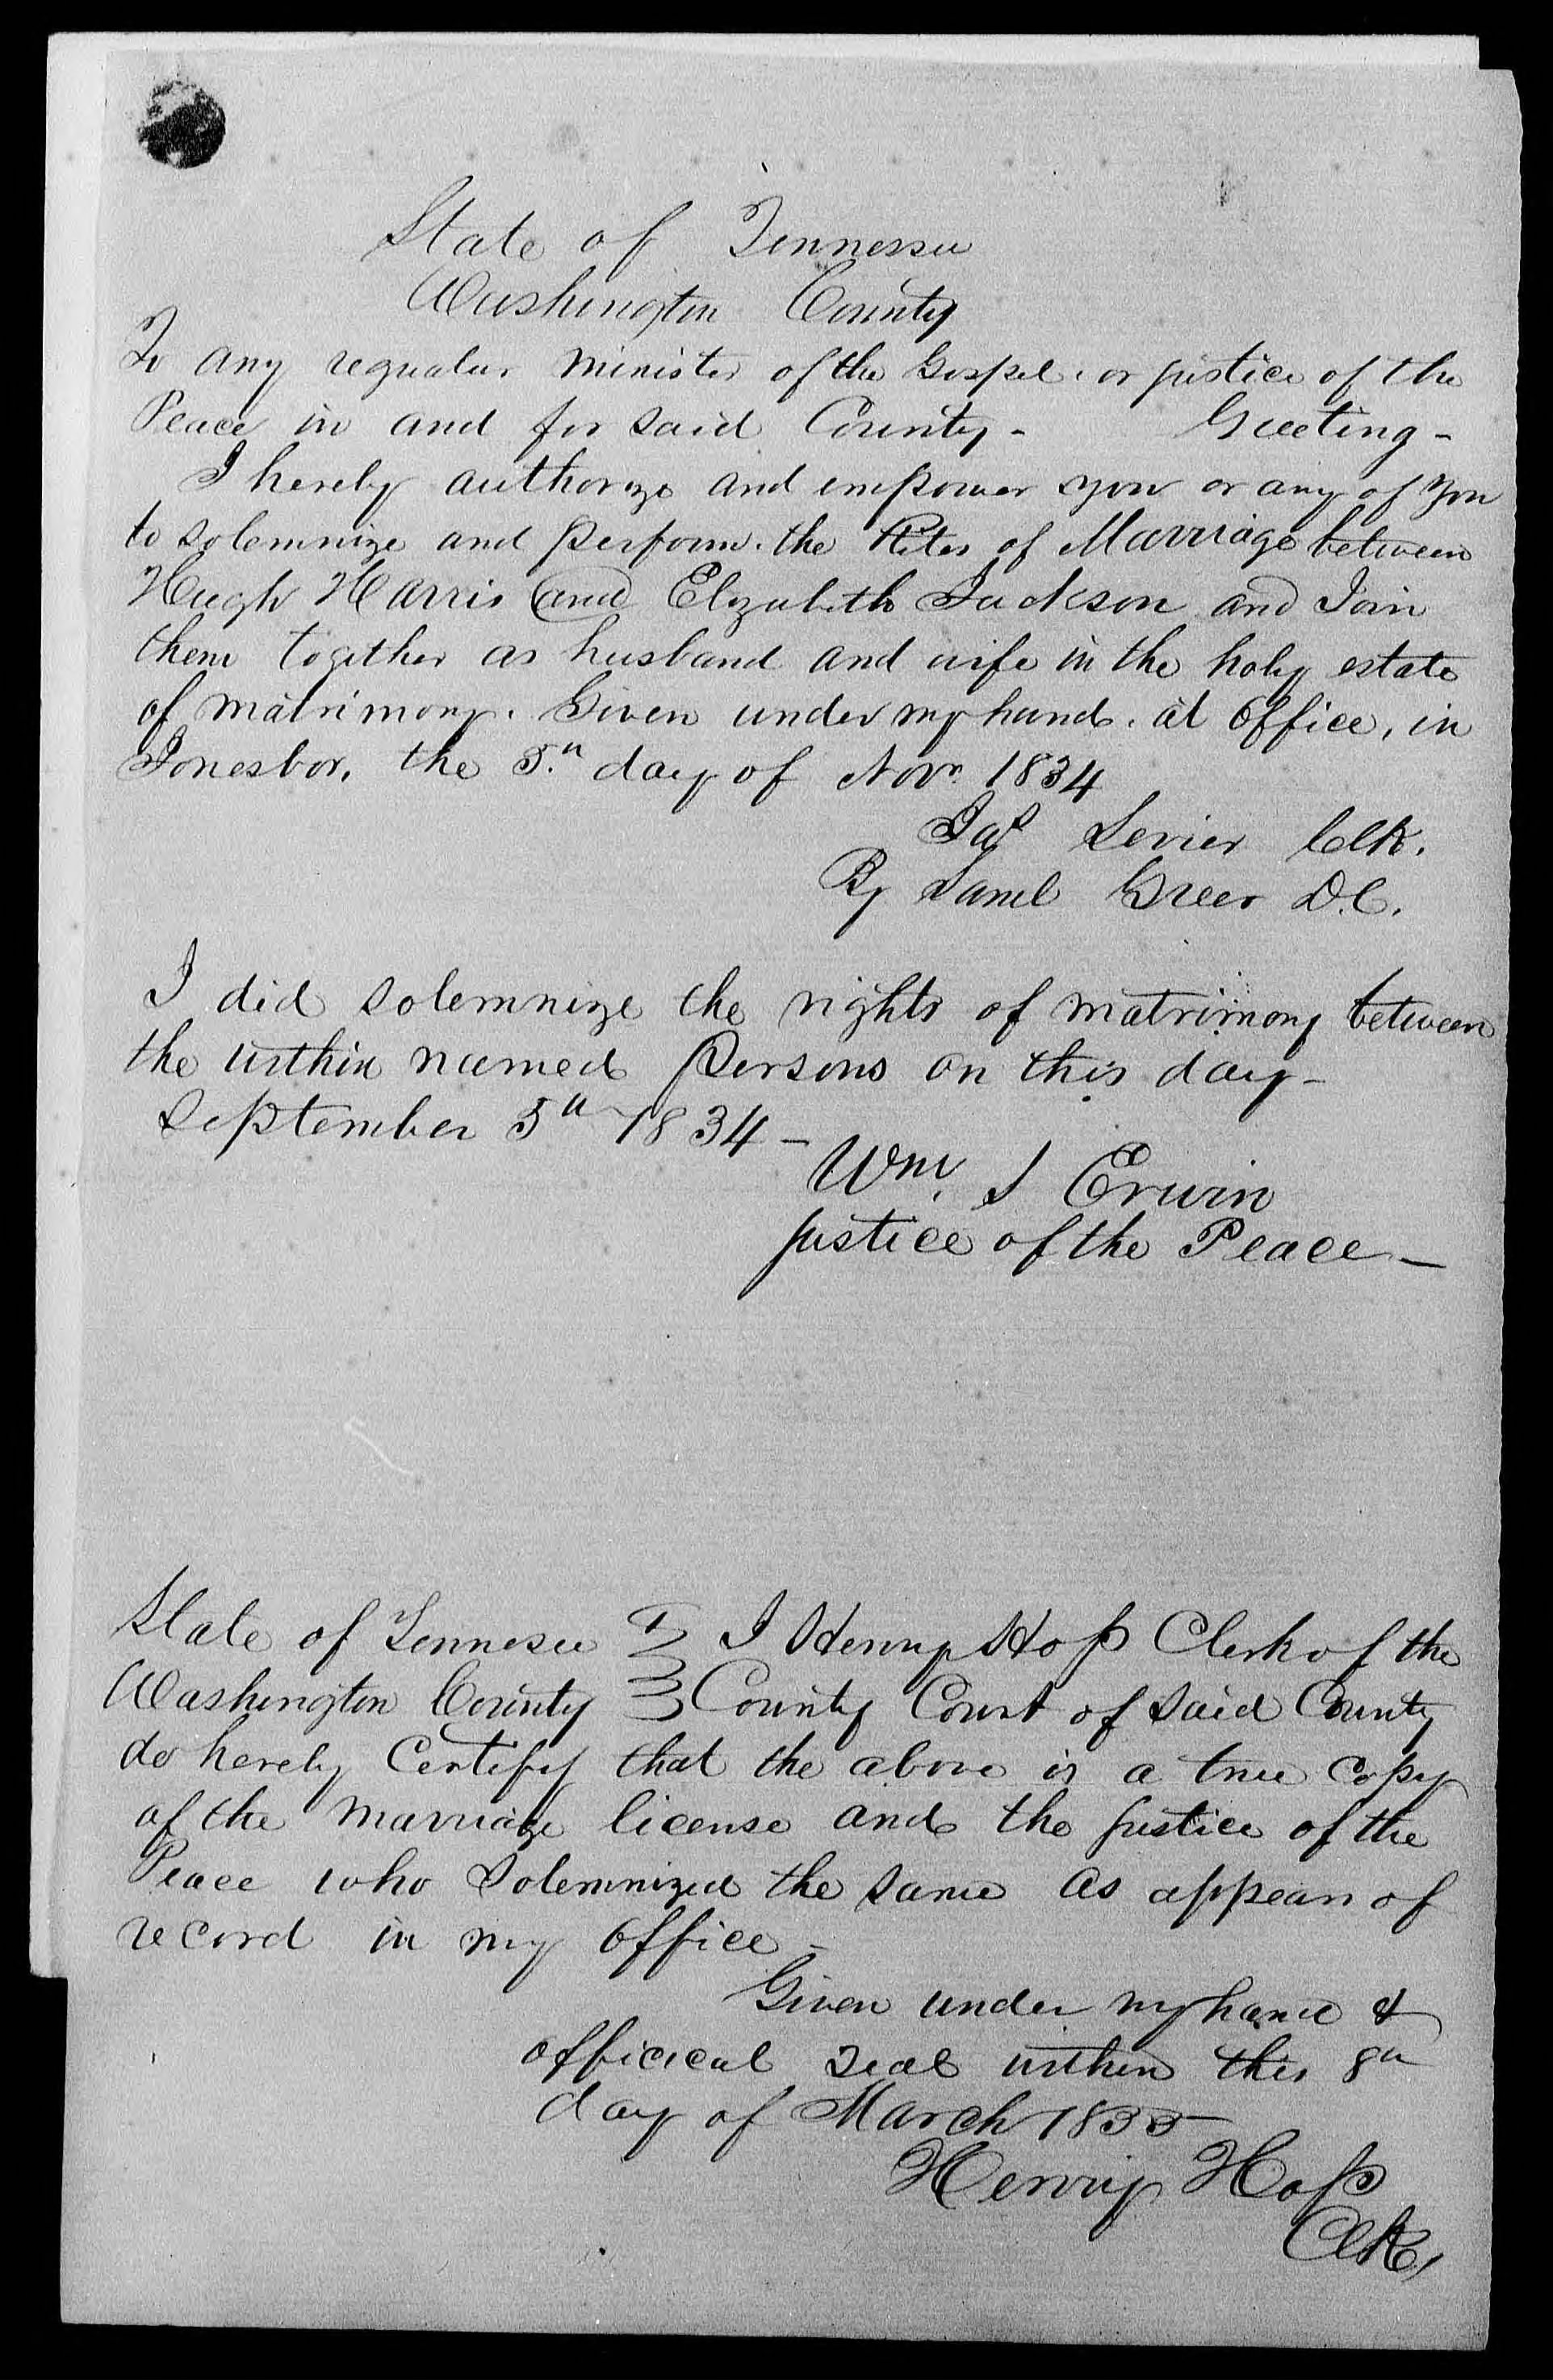 State of Tennessee
Washington County
To any regualar minister of the Gospel. or justice of the
Peace in and for said County - Greeting -
I hereby authorize and empower you or any of you
to solemnize and perform. the Rites of Marriage between
Hugh Harris and Elizabeth Jackson and Join
them together as husband and wife in the holy estate
of matrimony. Given under my hand. at office, in
Jonesboro, the 5.th day of Novr. 1834
Jas Sevier Clk.
By Saml Greer D.C.
I did solemnize the rights of matrimony between
the within named persons on this day -
September 5th 1834 -
Wm. S Erwin
justice of the Peace -
State of Tennesee I Henry Hoss Clerk of the
Washington County County Court of said County
do hereby Certify that the above is a true Copy
of the marriage license and the justice of the
Peace who solemnized the same as appears of
record in my office -
Given under my hand &
officical seal within this 8th
day of March 1855
Henry Hoss
Clk,